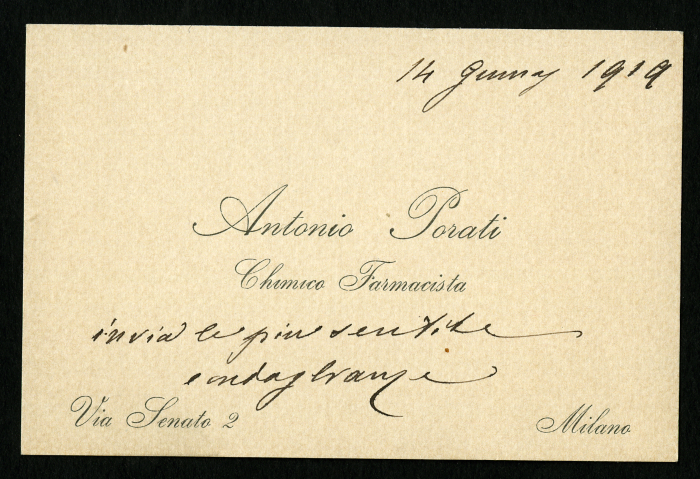 14 Giugno 1919
Antonio Porati
Chimico Farmacista
invia le più sentite
condoglianze
Via Senato 2
Milano